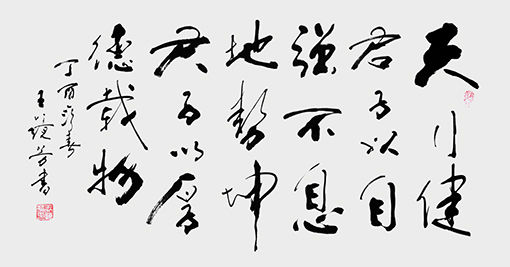 天行健
君子以自
強不息
地勢坤
君子以厚
德載物
丁酉春
王鏡芳書